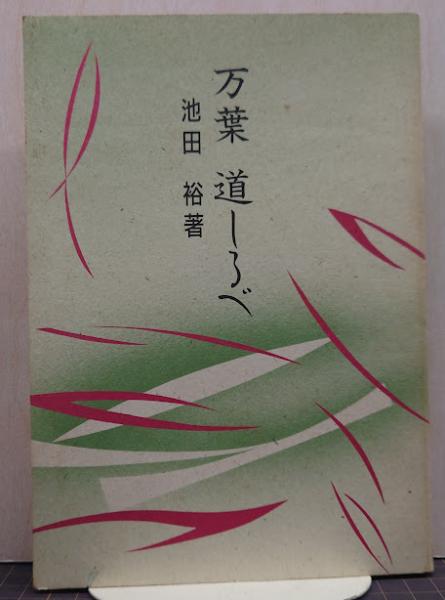 万葉 道しるべ
池田 裕著